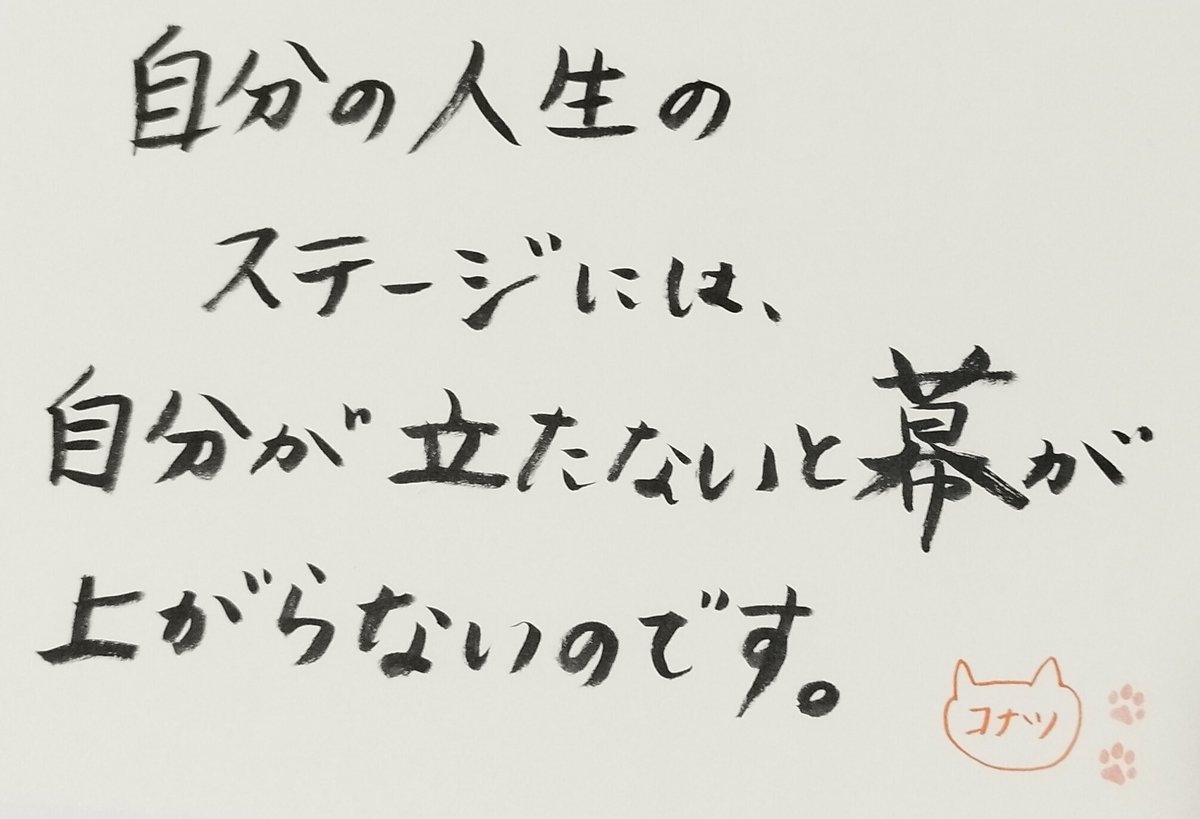 自分の人生の
ステージには、
自分が立たないと幕が
上がらないのです。
コナツ